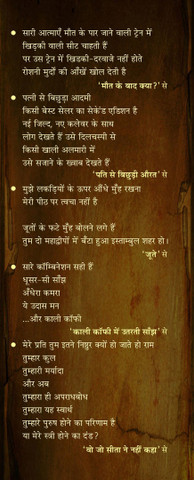 • सारी आत्माएँ मौत के पार जाने वाली ट्रेन में
खिड़की वाली सीट चाहती हैं
पर उस ट्रेन में खिडकी-दरवाजे नहीं होते
रोशनी मुर्दों की आँखें खोल देती है
'मौत के बाद क्या?' से
• पत्नी से बिछुड़ा आदमी
किसी बेस्ट सेलर का सेकेंड एडिशन है
नई जिल्द, नए कलेवर के साथ
लोग देखते हैं उसे दिलचस्पी से
किसी खाली अलमारी में
उसे सजाने के ख्वाब देखते हैं
'पति से बिछुड़ी औरत' से
• मुझे लकड़ियों के ऊपर औंधे मुँह रखना
मेरी पीठ पर त्वचा नहीं है
जूतों के फटे मुँह बोलने लगे हैं
तुम दो महाद्वीपों में बँटा हुआ इस्ताम्बुल शहर हो।
'जूते' से
• सारे कॉम्बिनेशन सही हैं
धूसर-सी साँझ
अँधेरा कमरा
ये उदास मन
...और काली कॉफी
'काली कॉफी में उतरती साँझ' से
• मेरे प्रति तुम इतने निष्ठुर क्यों हो जाते हो राम
तुम्हार कुल
तुम्हारी मर्यादा
और अब
तुम्हारा ही अपराधबोध
तुम्हारा यह स्वार्थ
तुम्हारे पुरुष होने का परिणाम है
या मेरे स्त्री होने का दंड?
'वो जो सीता ने नहीं कहा' से